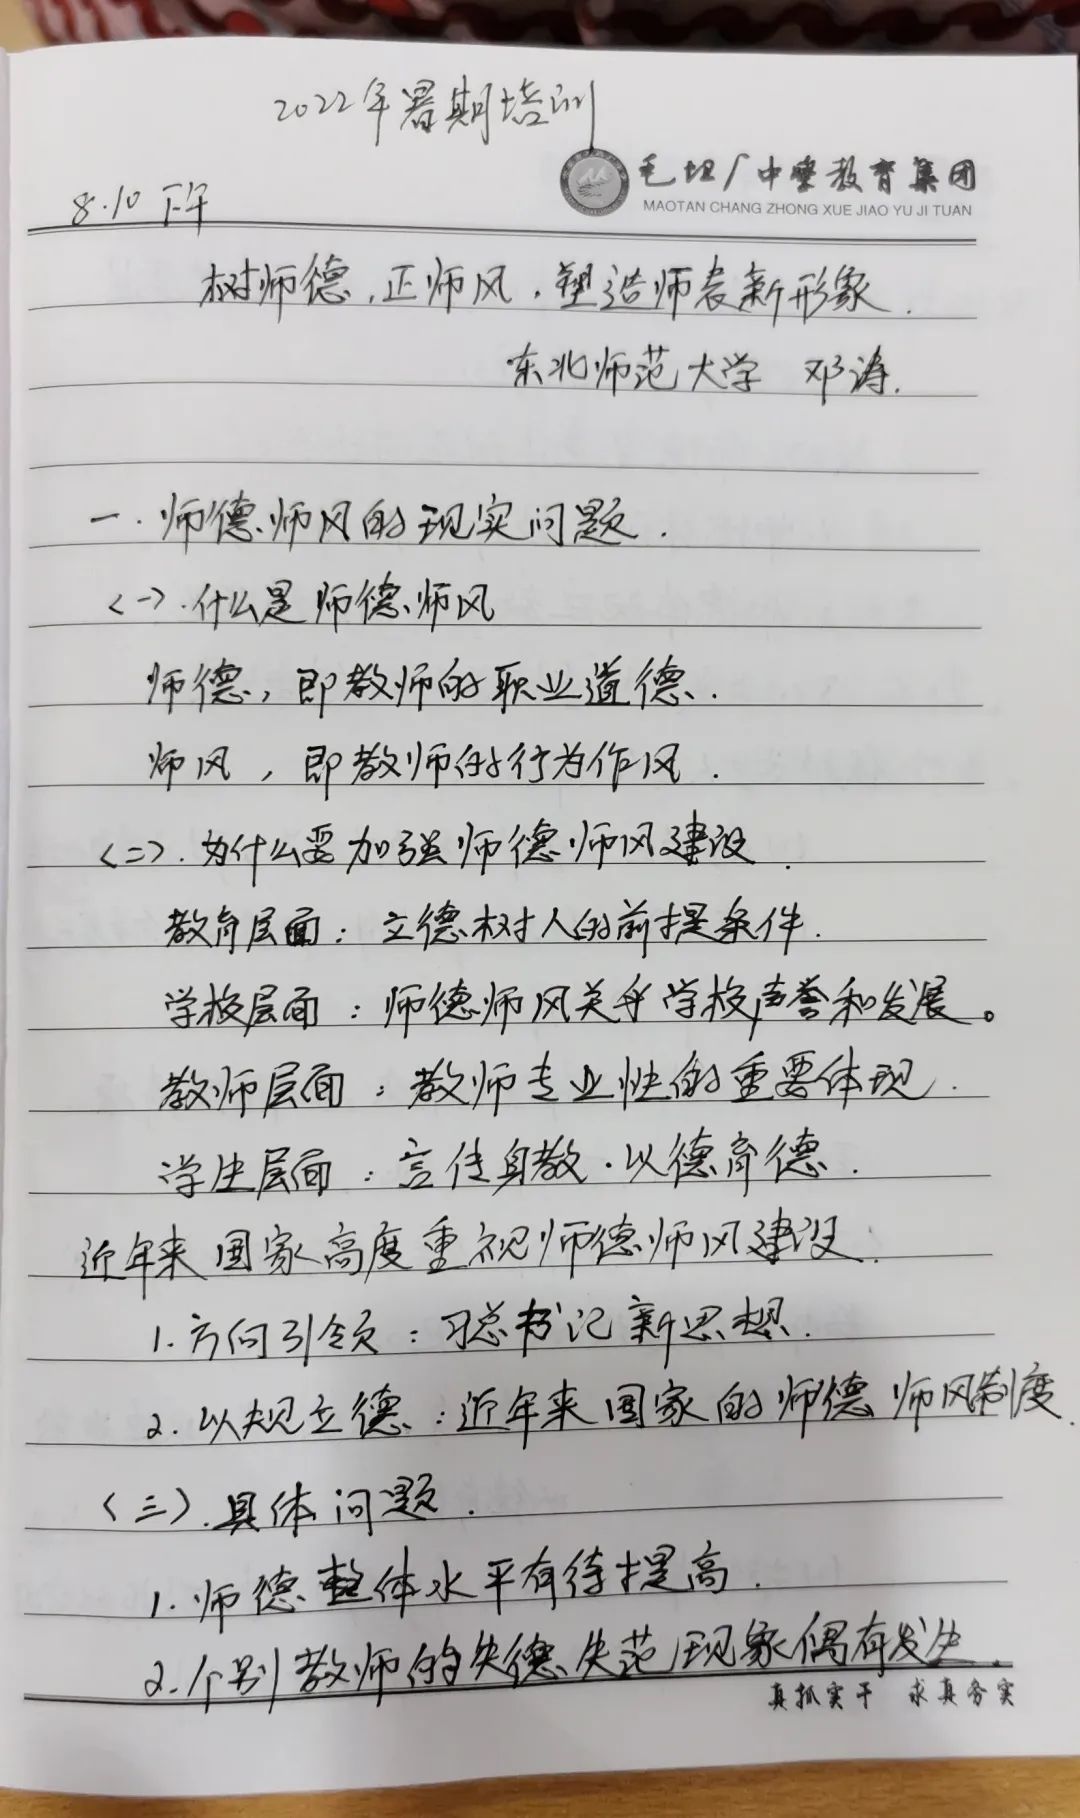 2022年暑期培训
毛坦厂中学教育集团
MAOTAN CHANG ZHONG XUE JIAO YU JI TUAN
8.10 下午
树师德,正师风,塑造师表新形象.
东北师范大学 邓涛.
一.师德师风的现实问题.
<一>.什么是师德师风
师德,即教师的职业道德.
师风,即教师的行为作风.
<二>.为什么要加强师德师风建设.
教育层面:立德树人的前提条件.
学校层面:师德师风关乎学校声誉和发展。
教师层面:教师专业性的重要体现.
学生层面:言传身教.以德育德.
近年来国家高度重视师德师风建设.
1.方向引领:习总书记新思想.
2.以规立德:近年来国家的师德师风制度.
<三>.具体问题.
1.师德整体水平有待提高.
2.个别教师的失德失范现象偶有发生.
真抓实干 求真务实